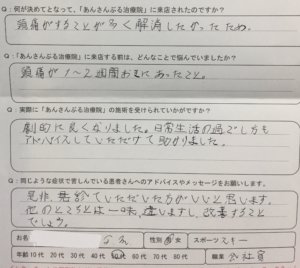 Q：何が決めてとなって、「あんさんぶる治療院」に来店されたのですか？
頭痛がすることが多く解消したかったため。
Q：「あんさんぶる治療院」に来店する前は、どんなことで悩んでいましたか？
頭痛が1〜2週間おきにあったこと。
Q：実際に「あんさんぶる治療院」の施術を受けられていかがですか？
劇的に良くなりました。日常生活の過ごし方も
アドバイスしていただけて助かりました。
Q：同じような症状で苦しんでいる患者さんへのアドバイスやメッセージをお願いします。
是非、診ていただいた方がいいと思います。
他のところとは一味違いますし、改善すること
でしょう。
お名前 さん 性別 男 女 スポーツ スキー
年齢 10代 20代 30代 40代 50代 60代 70代 80代 職業 会社員